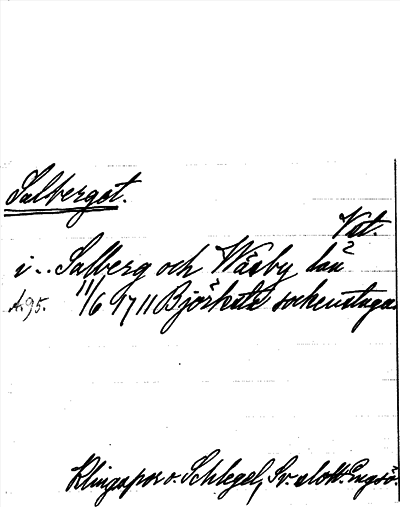 Salberget.
Vst.
i .. Salberg och Wäsby län
A.95. 11/6 1711 Björksta sockenstuga.
Klingspor o. Schlegel, Sv. slott. Engsö.